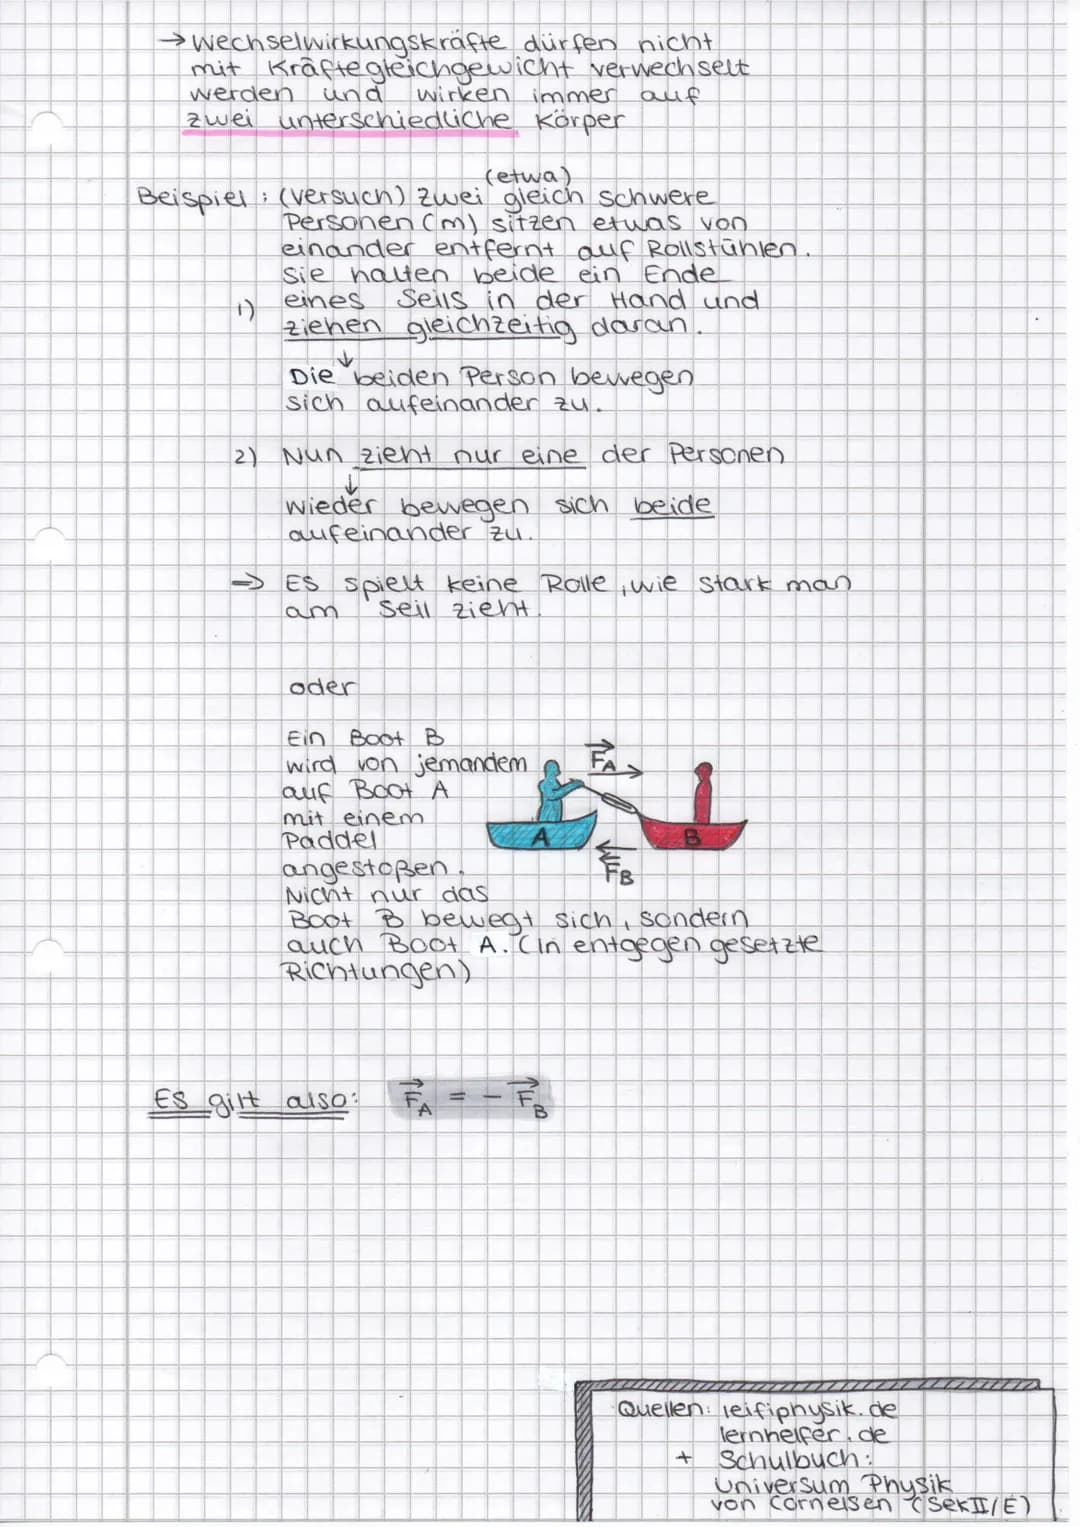 → Wechselwirkungskräfte dürfen nicht
mit Kräftegleichgewicht verwechselt
werden und wirken immer auf
zwei unterschiedliche Körper
(etwa)
Beispiel: (Versuch) Zwei gleich schwere
Personen (m) sitzen etwas von
einander entfernt auf Rollstühlen.
Sie halten beide ein Ende
1) eines Seils in der Hand und
ziehen gleichzeitig daran.
↓
Die beiden Person bewegen
sich aufeinander zu.
2) Nun zieht nur eine der Personen
↓
Wieder bewegen sich beide
aufeinander zu.
⇒ Es spielt keine Rolle, wie stark man
am Seil zieht.
oder
Ein Boot B
wird von jemandem
auf Boot A
mit einem
Paddel
angestoßen.
Nicht nur das
Boot B bewegt sich, sondern
auch Boot A. (In entgegen gesetzte
Richtungen)
F⃗A
A
B
F⃗B
Es gilt also: F⃗A = - F⃗B
Quellen: leifiphysik.de
lernhelfer.de
+ Schulbuch:
Universum Physik
von Cornelsen (SekII/E)